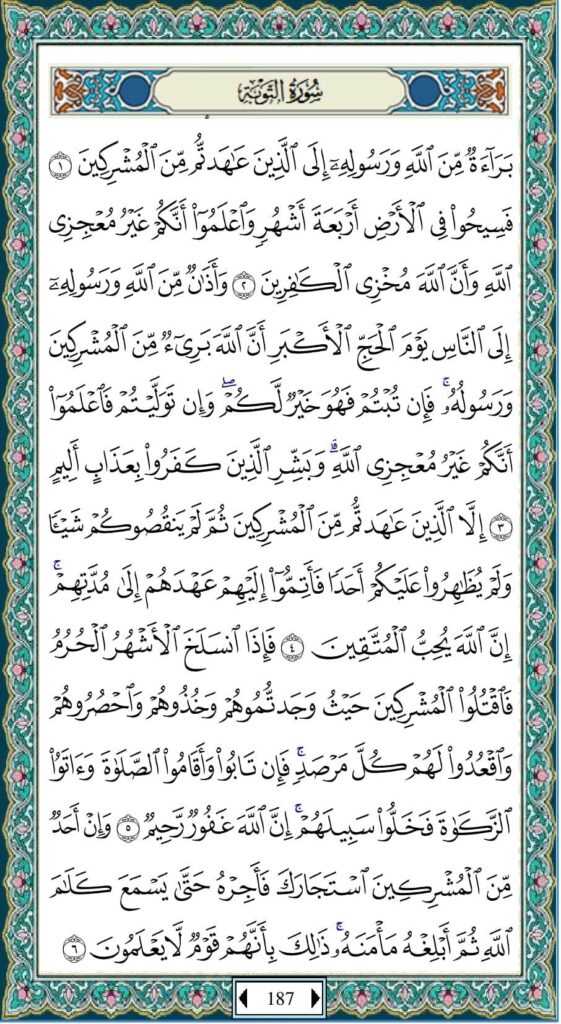 سُورَةُ التَّوْبَةِ
بَرَآءَةٌ مِّنَ ٱللَّهِ وَرَسُولِهِۦٓ إِلَى ٱلَّذِينَ عَـٰهَدتُّم مِّنَ ٱلْمُشْرِكِينَ ١
فَسِيحُوا۟ فِى ٱلْأَرْضِ أَرْبَعَةَ أَشْهُرٍ وَٱعْلَمُوٓا۟ أَنَّكُمْ غَيْرُ مُعْجِزِى
ٱللَّهِ وَأَنَّ ٱللَّهَ مُخْزِى ٱلْكَـٰفِرِينَ ٢ وَأَذَٰنٌ مِّنَ ٱللَّهِ وَرَسُولِهِۦٓ
إِلَى ٱلنَّاسِ يَوْمَ ٱلْحَجِّ ٱلْأَكْبَرِ أَنَّ ٱللَّهَ بَرِىٓءٌ مِّنَ ٱلْمُشْرِكِينَ
وَرَسُولُهُۥ ۚ فَإِن تُبْتُمْ فَهُوَ خَيْرٌ لَّكُمْ ۖ وَإِن تَوَلَّيْتُمْ فَٱعْلَمُوٓا۟
أَنَّكُمْ غَيْرُ مُعْجِزِى ٱللَّهِ ۗ وَبَشِّرِ ٱلَّذِينَ كَفَرُوا۟ بِعَذَابٍ أَلِيمٍ
٣ إِلَّا ٱلَّذِينَ عَـٰهَدتُّم مِّنَ ٱلْمُشْرِكِينَ ثُمَّ لَمْ يَنقُصُوكُمْ شَيْـًٔا
وَلَمْ يُظَـٰهِرُوا۟ عَلَيْكُمْ أَحَدًا فَأَتِمُّوٓا۟ إِلَيْهِمْ عَهْدَهُمْ إِلَىٰ مُدَّتِهِمْ ۚ
إِنَّ ٱللَّهَ يُحِبُّ ٱلْمُتَّقِينَ ٤ فَإِذَا ٱنسَلَخَ ٱلْأَشْهُرُ ٱلْحُرُمُ
فَٱقْتُلُوا۟ ٱلْمُشْرِكِينَ حَيْثُ وَجَدتُّمُوهُمْ وَخُذُوهُمْ وَٱحْصُرُوهُمْ
وَٱقْعُدُوا۟ لَهُمْ كُلَّ مَرْصَدٍ ۚ فَإِن تَابُوا۟ وَأَقَامُوا۟ ٱلصَّلَوٰةَ وَءَاتَوُا۟
ٱلزَّكَوٰةَ فَخَلُّوا۟ سَبِيلَهُمْ ۚ إِنَّ ٱللَّهَ غَفُورٌ رَّحِيمٌ ٥ وَإِنْ أَحَدٌ
مِّنَ ٱلْمُشْرِكِينَ ٱسْتَجَارَكَ فَأَجِرْهُ حَتَّىٰ يَسْمَعَ كَلَـٰمَ
ٱللَّهِ ثُمَّ أَبْلِغْهُ مَأْمَنَهُۥ ۚ ذَٰلِكَ بِأَنَّهُمْ قَوْمٌ لَّا يَعْلَمُونَ ٦
187